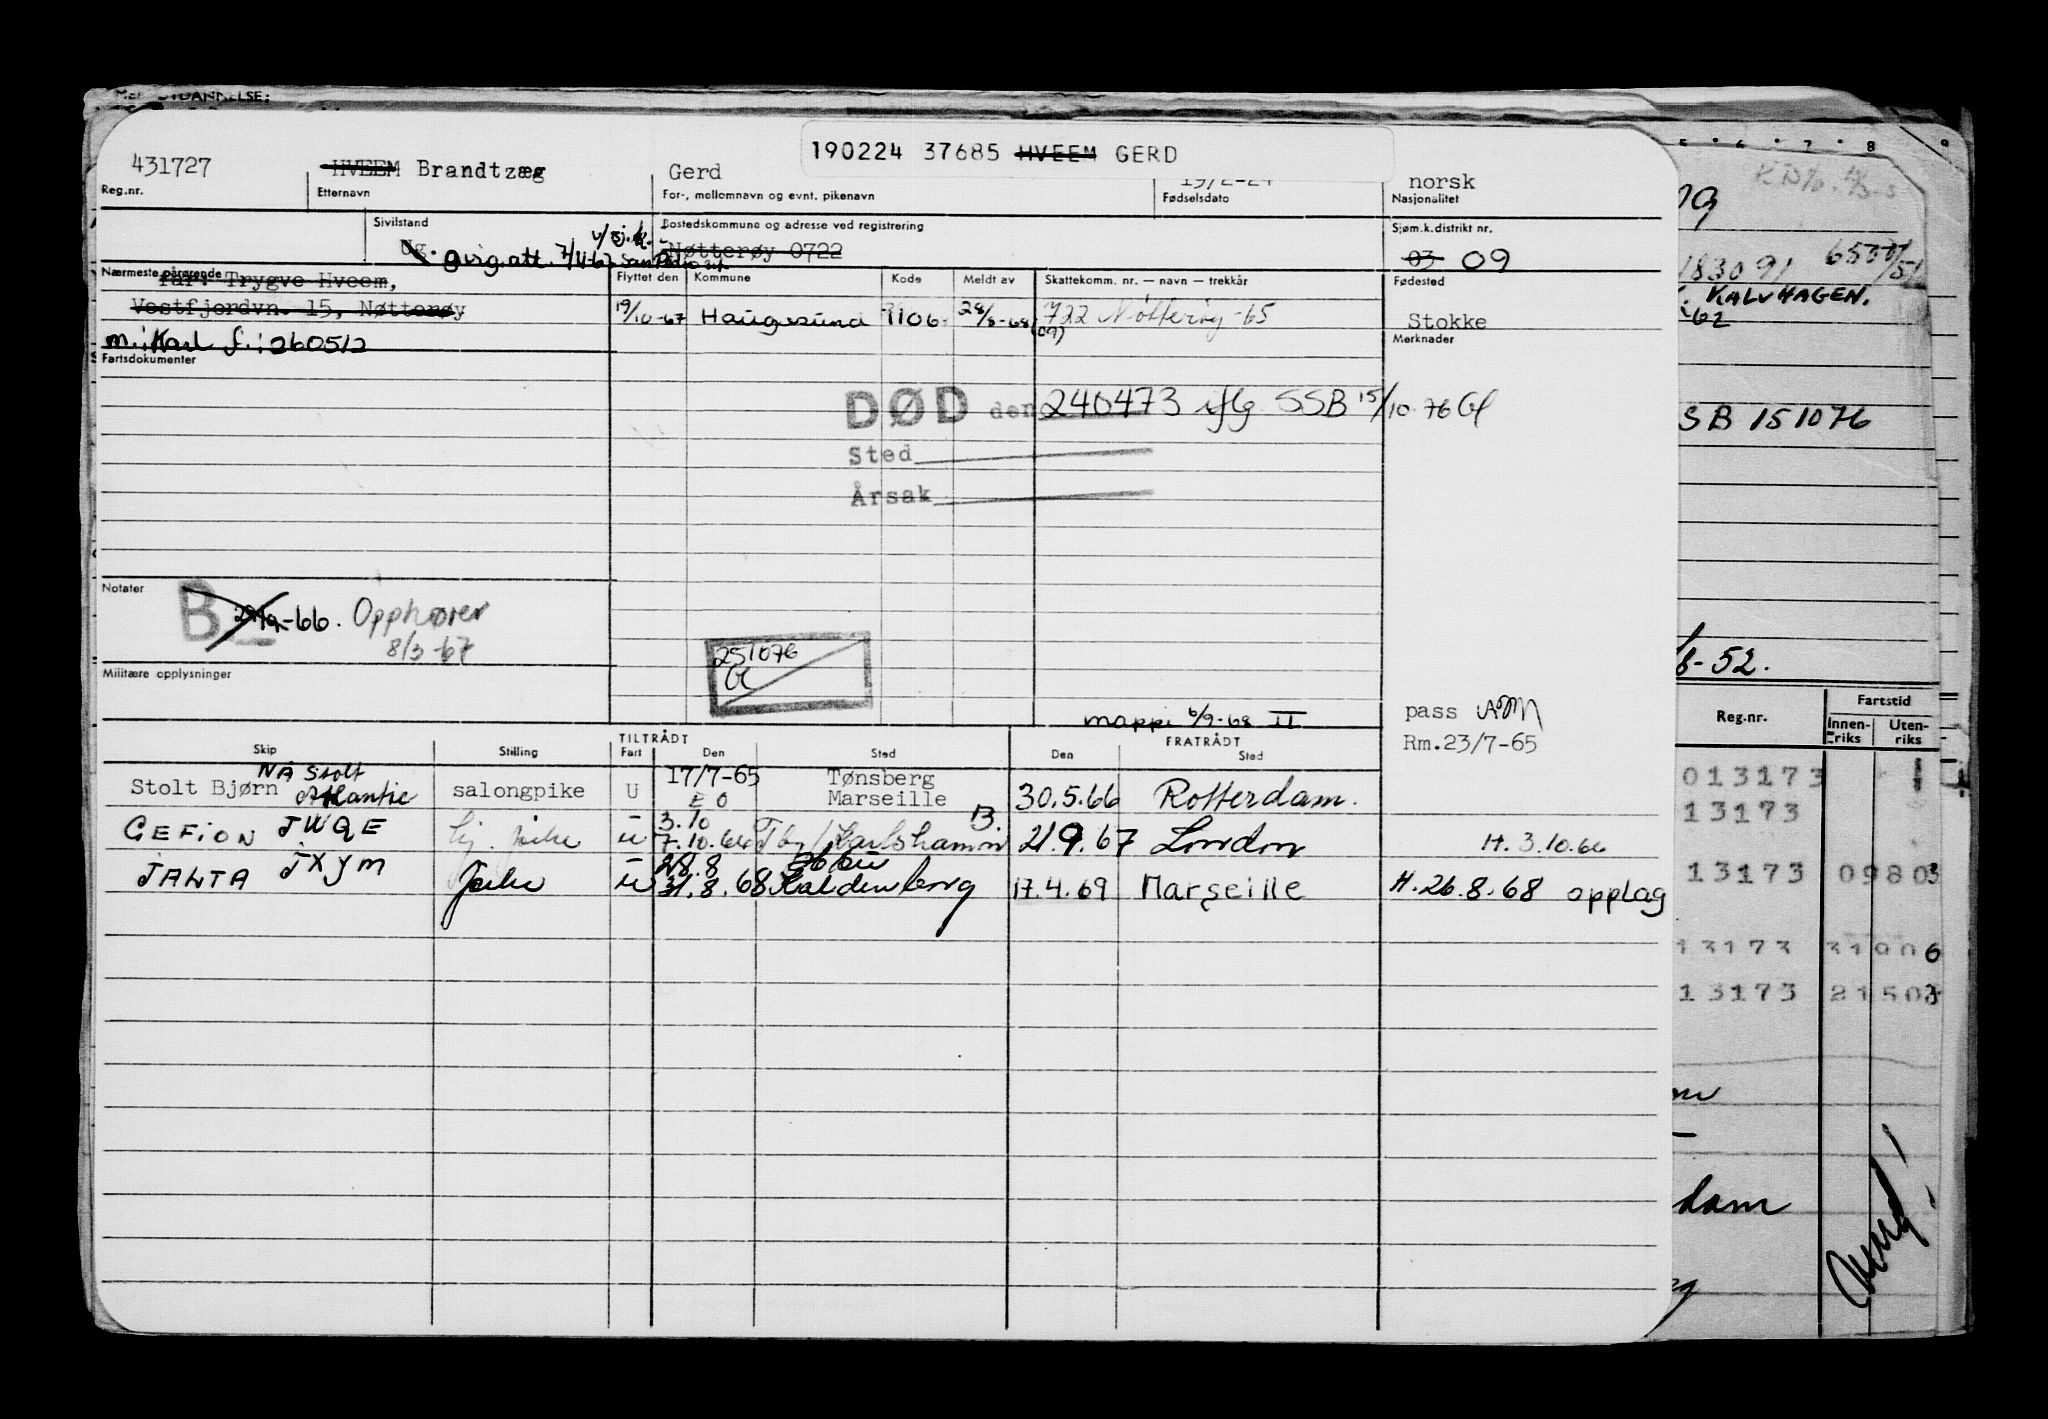 190224 37685 HVEEM GERD
431727 HVEEM Brandtzæg Gerd 19/2-24 norsk
Reg.nr. Etternavn For-, mellomnavn og evnt. pikenavn Fødselsdato Nasjonalitet
Sivilstand Bostedskommune og adresse ved registrering Sjøm.k.distrikt nr.
Ug. Nøtterøy 0722 03 09
Nærmeste pårørende Flyttet den Kommune Kode Meldt av Skattekomm. nr. — navn — trekkår Fødested
far: Trygve Hveem,
Vestfjordvn. 15, Nøtterøy 19/10-67 Haugesund 1106 28/8-68 722 Nøtterøy -65 Stokke
(09)
m.: Karl f.: 260512 Merknader
Fartsdokumenter
DØD den 240473 iflg. SSB 15/10-76
Sted
Årsak
Notater
B 29/9-66. Opphører
8/3-67
Militære opplysninger
251076
mappe 6/9-68 II
pass
Rm.23/7-65
TILTRÅDT FRATRÅDT
Skip Stilling Fart Den Sted Den Sted
Stolt Bjørn NÅ Stolt Atlantic salongpike U 17/7-65 Tønsberg
E O Marseille 30.5.66 Rotterdam.
GEFION JWQE U 3.10
7.10.66 Tbg/Karlshamn B. 21.9.67 London H. 3.10.66
JALTA JXYM U 28.8
31.8.68 Kaldenberg 17.4.69 Marseille H. 26.8.68 opplag
5 6 7 8 9
183091
KALVHAGEN.
62
SB 151076
8-52.
Reg.nr. Fartstid
Innenriks Utenriks
013173
13173
13173 09803
13173 31906
13173 21503
dam